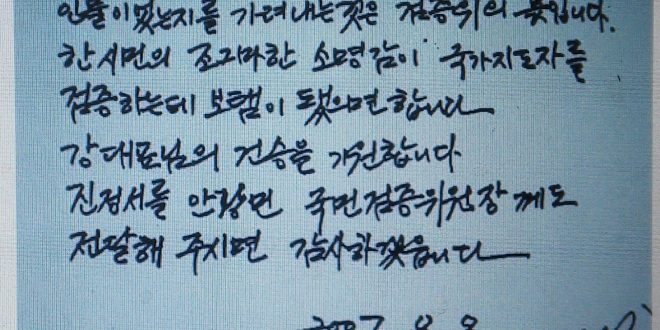 인물이 있는지를 가려내는 것은 검증위의 몫입니다.
한 시민의 조그마한 소명감이 국가지도자를
검증하는데 보탬이 됐으면 합니다
강대표님의 건승을 기원합니다
진정서를 안강민 국민검증위원장께도
전달해 주시면 감사하겠읍니다
2007. 8. 8.